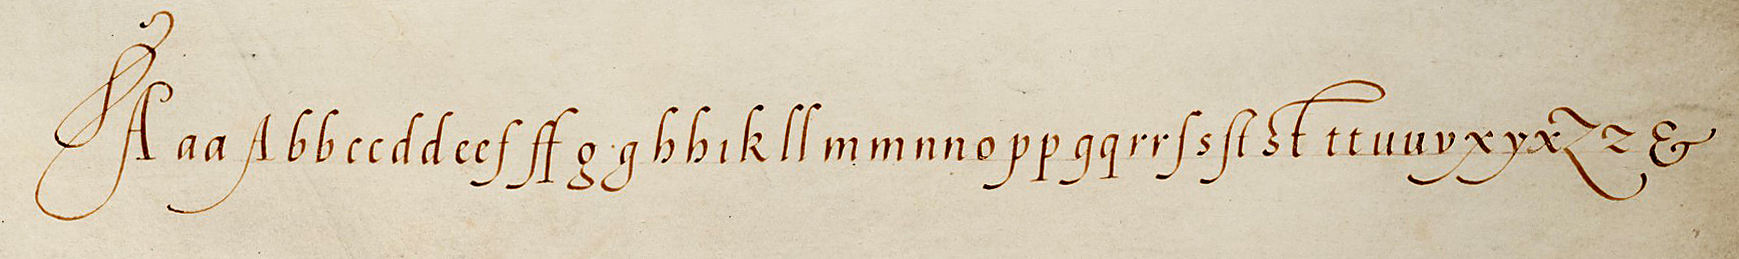 A a a A b b c c d d e e f ff g g h h ı k l l m m n n o p p q q r r ſ s ſt st t t u u v x y x Z z &